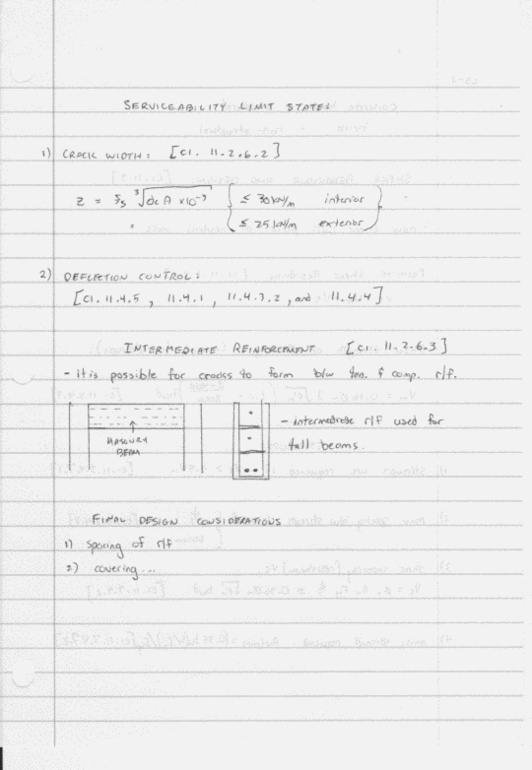 SERVICEABILITY LIMIT STATES
1) CRACK WIDTH: [Cl. 11.2.6.2]
z = fs ³√dc A ×10⁻³ { ≤ 30 kN/m interior
≤ 25 kN/m exterior }
2) DEFLECTION CONTROL:
[Cl. 11.4.5, 11.4.1, 11.4.3.2, and 11.4.4]
INTERMEDIATE REINFORCEMENT [Cl. 11.2.6.3]
- it is possible for cracks to form b/w ten. & comp. r/f.
MASONRY
BEAM
- intermediate r/f used for
tall beams.
FINAL DESIGN CONSIDERATIONS
1) spacing of r/f
2) covering...